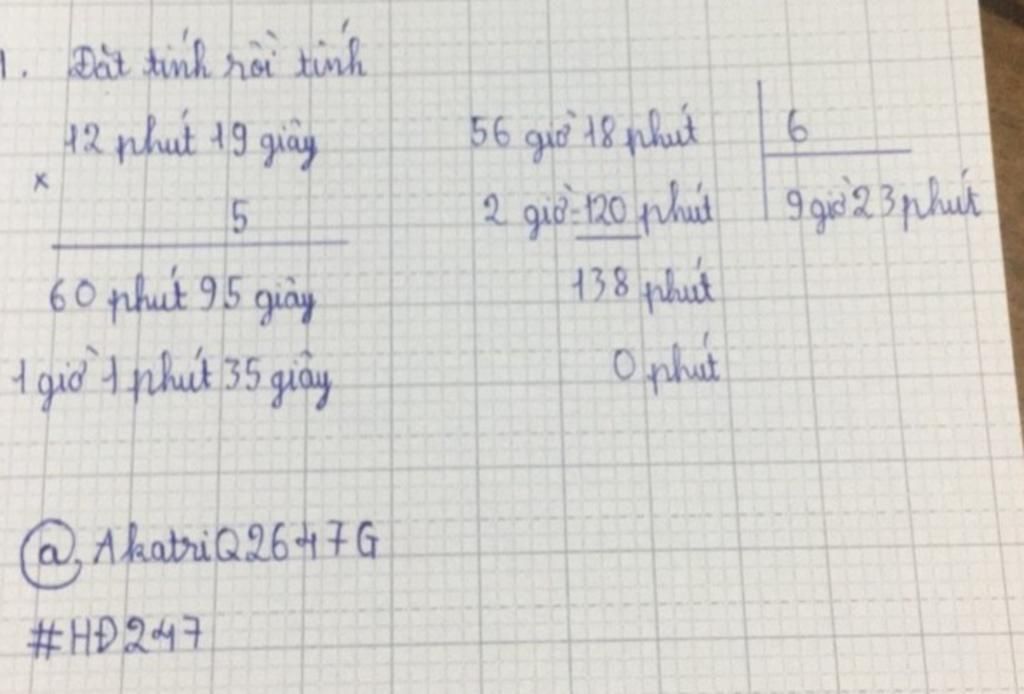 1. Đặt tính rồi tính
12 phút 19 giây
×
5
60 phút 95 giây
1 giờ 1 phút 35 giây
56 giờ 18 phút
6
2 giờ=120 phút
9 giờ 23 phút
138 phút
0 phút
@AkatriQ2647G
#HĐ247